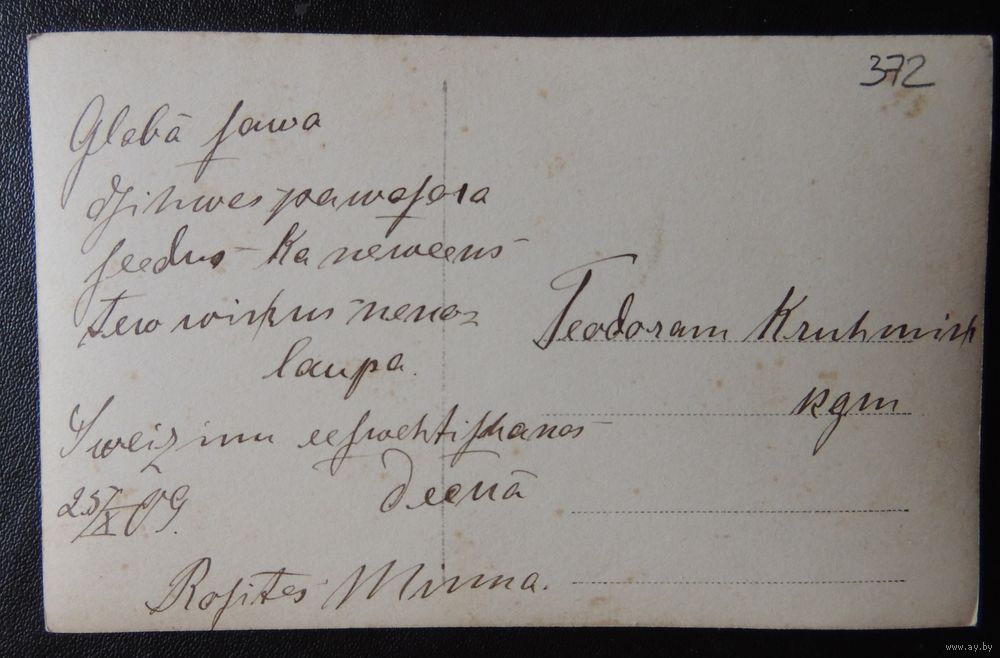 372
Glabā sawa
dsihwes pawasara
seedus - ka neweens
tew wiņus neno=
laupa.
Sweizinu eeswehtischanas
deenā
25/X 09.
Rositēs Minna.
Teodoram Kruhmiņ
kgm
www.ay.by